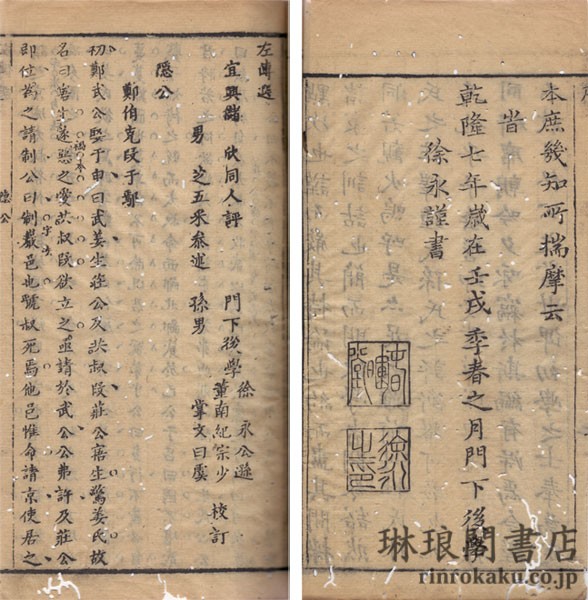 本庶幾知所揣摩云
旹
乾隆七年歲在壬戌季春之月門下後學
徐永謹書
徐永之印
左傳選
宜興儲欣同人評 門下後學 徐永公遜
董南紀宗少 校訂
男 芝五采參述 孫男 掌文曰虞
隱公
鄭伯克段于鄢
初鄭武公娶于申曰武姜生莊公及共叔段莊公寤生驚姜氏故
名曰寤生遂惡之愛共叔段欲立之亟請於武公公弗許及莊公
禍本
即位為之請制公曰制巖邑也虢叔死焉他邑惟命請京使居之
字法
隱公
琳琅閣書店
rinrokaku.co.jp